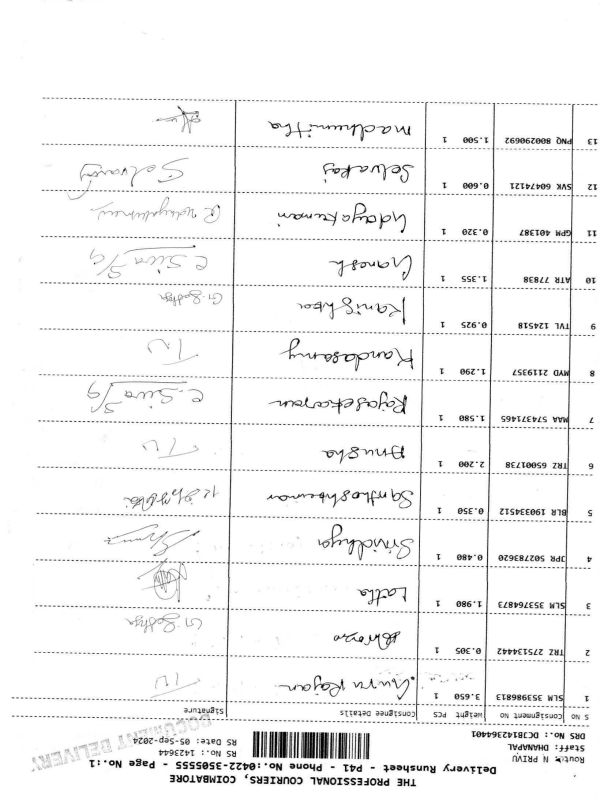 THE PROFESSIONAL COURIERS, COIMBATORE
Delivery Runsheet - P41 - Phone No.:0422-3505555 - Page No.:1
Route: N PRIVU
Staff: DHANAPAL
DRS No.: DCJB142364401
RS No.: 1423644
RS Date: 05-Sep-2024
DOCUMENT DELIVERY
S NO Consignment NO Weight PCS Consignee Details Signature
1 SLM 353986813 3.650 1 Guru Rajan
2 TRZ 275132442 0.305 1 G. Sathya
3 SLM 353764873 1.980 1 Latha
4 JPR 502783620 0.480 1 Srividhya
5 BLR 190334512 0.350 1 Santhoshkumar
6 TRZ 65001738 2.200 1 Anusha
7 MAA 574371465 1.580 1 Rajasekaran C. Siva S/G
8 MYD 2119357 1.290 1 Kandasamy
9 TVL 124518 0.925 1 Kanishka G. Sathya
10 ATR 77838 1.355 1 Ganesh C. Siva S/G
11 GPM 401387 0.320 1 Udayakumar
12 SVK 60474121 0.600 1 Selvaraj Selvaraj
13 PNQ 800290692 1.500 1 Madhumitha